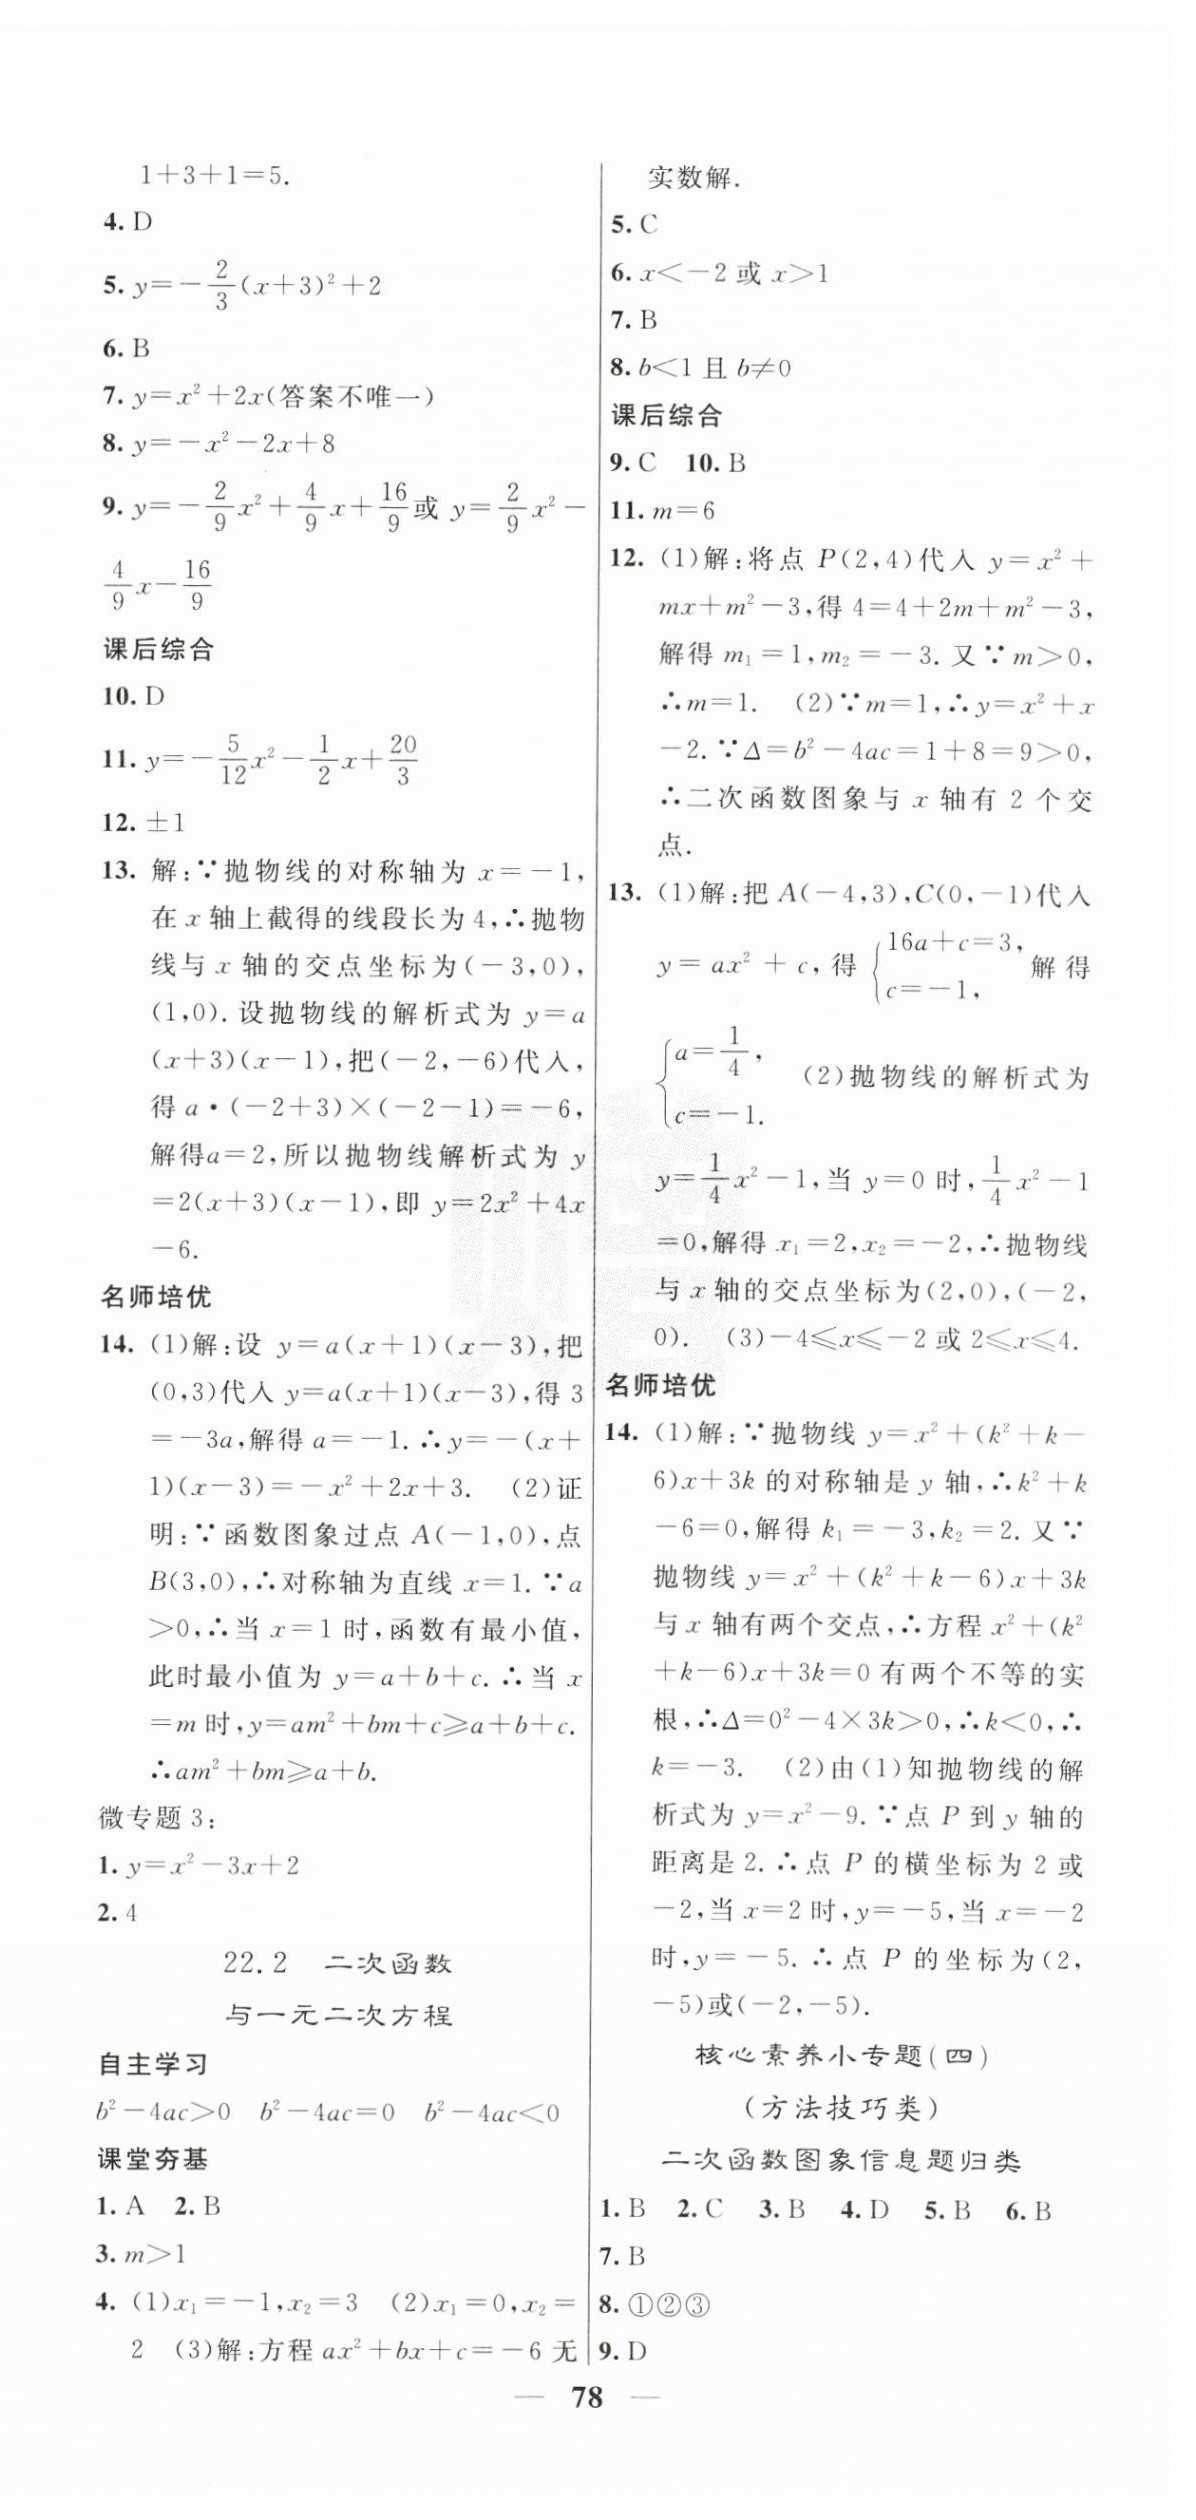 1+3+1=5.
4. D
5. y=-\frac{2}{3}(x+3)²+2
6. B
7. y=x²+2x(答案不唯一)
8. y=-x²-2x+8
9. y=-\frac{2}{9}x²+\frac{4}{9}x+\frac{16}{9}或 y=\frac{2}{9}x²-
\frac{4}{9}x-\frac{16}{9}
课后综合
10. D
11. y=-\frac{5}{12}x²-\frac{1}{2}x+\frac{20}{3}
12. ±1
13. 解:∵抛物线的对称轴为 x=-1,
在 x 轴上截得的线段长为 4,∴抛物
线与 x 轴的交点坐标为(-3,0),
(1,0). 设抛物线的解析式为 y=a
(x+3)(x-1),把(-2,-6)代入,
得 a·(-2+3)×(-2-1)=-6,
解得a=2,所以抛物线解析式为 y
=2(x+3)(x-1),即 y=2x²+4x
-6.
名师培优
14. (1)解:设 y=a(x+1)(x-3),把
(0,3)代入 y=a(x+1)(x-3),得 3
=-3a,解得 a=-1. ∴y=-(x+
1)(x-3)=-x²+2x+3. (2)证
明:∵函数图象过点 A(-1,0),点
B(3,0),∴对称轴为直线 x=1. ∵a
>0,∴当 x=1 时,函数有最小值,
此时最小值为 y=a+b+c. ∴当 x
=m 时,y=am²+bm+c≥a+b+c.
∴am²+bm≥a+b.
微专题 3:
1. y=x²-3x+2
2. 4
22.2 二次函数
与一元二次方程
自主学习
b²-4ac>0 b²-4ac=0 b²-4ac<0
课堂夯基
1. A 2. B
3. m>1
4. (1)x₁=-1,x₂=3 (2)x₁=0,x₂=
2 (3)解:方程 ax²+bx+c=-6 无
实数解.
5. C
6. x<-2 或 x>1
7. B
8. b<1 且 b≠0
课后综合
9. C 10. B
11. m=6
12. (1)解:将点 P(2,4)代入 y=x²+
mx+m²-3,得 4=4+2m+m²-3,
解得 m₁=1,m₂=-3. 又∵m>0,
∴m=1. (2)∵m=1,∴y=x²+x
-2. ∵Δ=b²-4ac=1+8=9>0,
∴二次函数图象与 x 轴有 2 个交
点.
13. (1)解:把 A(-4,3),C(0,-1)代入
y=ax²+c,得 {16a+c=3, c=-1, 解得
{a=\frac{1}{4}, c=-1. (2)抛物线的解析式为
y=\frac{1}{4}x²-1,当 y=0 时,\frac{1}{4}x²-1
=0,解得 x₁=2,x₂=-2,∴抛物线
与 x 轴的交点坐标为(2,0),(-2,
0). (3)-4≤x≤-2 或 2≤x≤4.
名师培优
14. (1)解:∵抛物线 y=x²+(k²+k-
6)x+3k 的对称轴是 y 轴,∴k²+k
-6=0,解得 k₁=-3,k₂=2. 又∵
抛物线 y=x²+(k²+k-6)x+3k
与 x 轴有两个交点,∴方程 x²+(k²
+k-6)x+3k=0 有两个不等的实
根,∴Δ=0²-4×3k>0,∴k<0,∴
k=-3. (2)由(1)知抛物线的解
析式为 y=x²-9. ∵点 P 到 y 轴的
距离是 2. ∴点 P 的横坐标为 2 或
-2,当 x=2 时,y=-5,当 x=-2
时,y=-5. ∴点 P 的坐标为(2,
-5)或(-2,-5).
核心素养小专题(四)
(方法技巧类)
二次函数图象信息题归类
1. B 2. C 3. B 4. D 5. B 6. B
7. B
8. ①②③
9. D
— 78 —